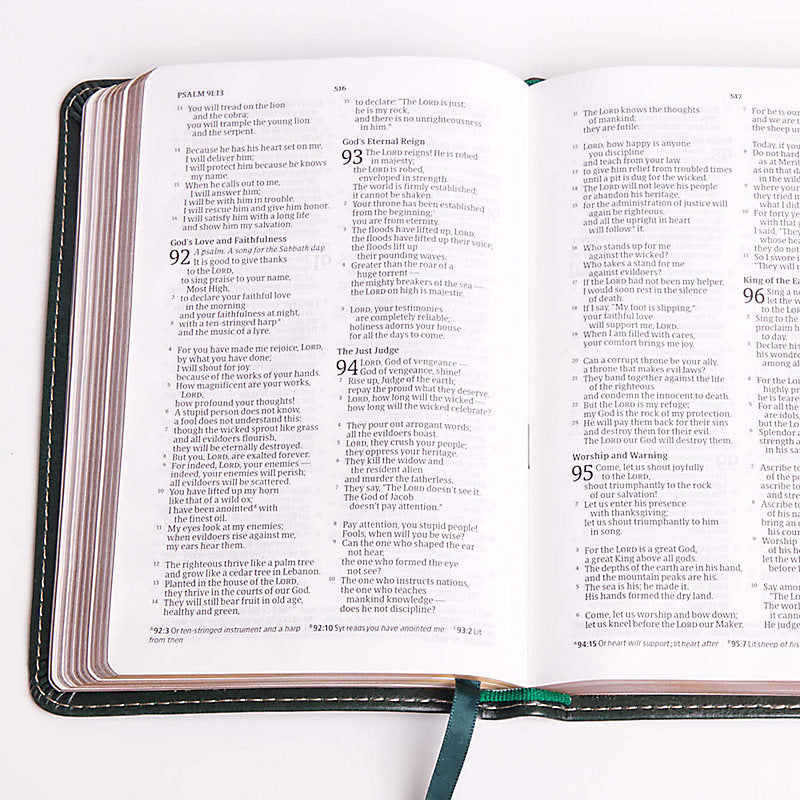 PSALM 91:13
516
13 You will tread on the lion
and the cobra;
you will trample the young lion
and the serpent.
14 Because he has his heart set on me,
I will deliver him;
I will protect him because he knows
my name.
15 When he calls out to me,
I will answer him;
I will be with him in trouble.
I will rescue him and give him honor.
16 I will satisfy him with a long life
and show him my salvation.
God's Love and Faithfulness
92 A psalm. A song for the Sabbath day.
It is good to give thanks
to the LORD,
to sing praise to your name,
Most High,
2 to declare your faithful love
in the morning
and your faithfulness at night,
3 with a ten-stringed harp ᴬ
and the music of a lyre.
4 For you have made me rejoice, LORD,
by what you have done;
I will shout for joy
because of the works of your hands.
5 How magnificent are your works,
LORD,
how profound your thoughts!
6 A stupid person does not know,
a fool does not understand this:
7 though the wicked sprout like grass
and all evildoers flourish,
they will be eternally destroyed.
8 But you, LORD, are exalted forever.
9 For indeed, LORD, your enemies —
indeed, your enemies will perish;
all evildoers will be scattered.
10 You have lifted up my horn
like that of a wild ox;
I have been anointed ᴮ with
the finest oil.
11 My eyes look at my enemies;
when evildoers rise against me,
my ears hear them.
12 The righteous thrive like a palm tree
and grow like a cedar tree in Lebanon.
13 Planted in the house of the LORD,
they thrive in the courts of our God.
14 They will still bear fruit in old age,
healthy and green,
15 to declare: "The LORD is just;
he is my rock,
and there is no unrighteousness
in him."
God's Eternal Reign
93 The LORD reigns! He is robed
in majesty;
the LORD is robed,
enveloped in strength.
The world is firmly established;
it cannot be shaken.
2 Your throne has been established
from the beginning;
you are from eternity.
3 The floods have lifted up, LORD,
the floods have lifted up their voice;
the floods lift up
their pounding waves.
4 Greater than the roar of a
huge torrent —
the mighty breakers of the sea —
the LORD on high is majestic.
5 LORD, your testimonies
are completely reliable;
holiness adorns your house
for all the days to come.
The Just Judge
94 LORD, God of vengeance —
God of vengeance, shine!
2 Rise up, Judge of the earth;
repay the proud what they deserve.
3 LORD, how long will the wicked —
how long will the wicked celebrate?
4 They pour out arrogant words;
all the evildoers boast.
5 LORD, they crush your people;
they oppress your heritage.
6 They kill the widow and
the resident alien
and murder the fatherless.
7 They say, "The LORD doesn't see it.
The God of Jacob
doesn't pay attention."
8 Pay attention, you stupid people!
Fools, when will you be wise?
9 Can the one who shaped the ear
not hear,
the one who formed the eye
not see?
10 The one who instructs nations,
the one who teaches
mankind knowledge —
does he not discipline?
ᴬ 92:3 Or ten-stringed instrument and a harp ᴮ 92:10 Syr reads you have anointed me ᶜ 93:2 Lit
from then
517
11 The LORD knows the thoughts
of mankind;
they are futile.
12 LORD, how happy is anyone
you discipline
and teach from your law
13 to give him relief from troubled times
until a pit is dug for the wicked.
14 The LORD will not leave his people
or abandon his heritage,
15 for the administration of justice will
again be righteous,
and all the upright in heart
will follow ᴬ it.
16 Who stands up for me
against the wicked?
Who takes a stand for me
against evildoers?
17 If the LORD had not been my helper,
I would soon rest in the silence
of death.
18 If I say, "My foot is slipping,"
your faithful love
will support me, LORD.
19 When I am filled with cares,
your comfort brings me joy.
20 Can a corrupt throne be your ally,
a throne that makes evil laws?
21 They band together against the life
of the righteous
and condemn the innocent to death.
22 But the LORD is my refuge;
my God is the rock of my protection.
23 He will pay them back for their sins
and destroy them for their evil.
The LORD our God will destroy them.
Worship and Warning
95 Come, let us shout joyfully
to the LORD,
shout triumphantly to the rock
of our salvation!
2 Let us enter his presence
with thanksgiving;
let us shout triumphantly to him
in song.
3 For the LORD is a great God,
a great King above all gods.
4 The depths of the earth are in his hand,
and the mountain peaks are his.
5 The sea is his; he made it.
His hands formed the dry land.
6 Come, let us worship and bow down;
let us kneel before the LORD our Maker.
7 For he is our
and we are t
the sheep u
Today, if you
8 Do not hard
as at Merib
as on that da
in the wild
9 where your
they tried m
what I did
10 For forty ye
with that g
I said, "They
whose hea
they do not
11 So I swore i
"They will n
King of the Ea
96 Sing a n
let the w
to the L
2 Sing to the
proclaim h
to day.
3 Declare his
his wondro
among al
4 For the LOR
highly pr
he is feare
5 For all the
are idols,
but the L
6 Splendor a
strength a
in his san
7 Ascribe to
of the pe
ascribe to
and stre
8 Ascribe to
of his na
bring an o
his cou
9 Worship
of his h
let the wh
before h
10 Say amon
"The Lo
The worl
it canno
He judge
ᴬ 94:15 Or heart will support; lit heart after ᴮ 95:7 Lit sheep of his